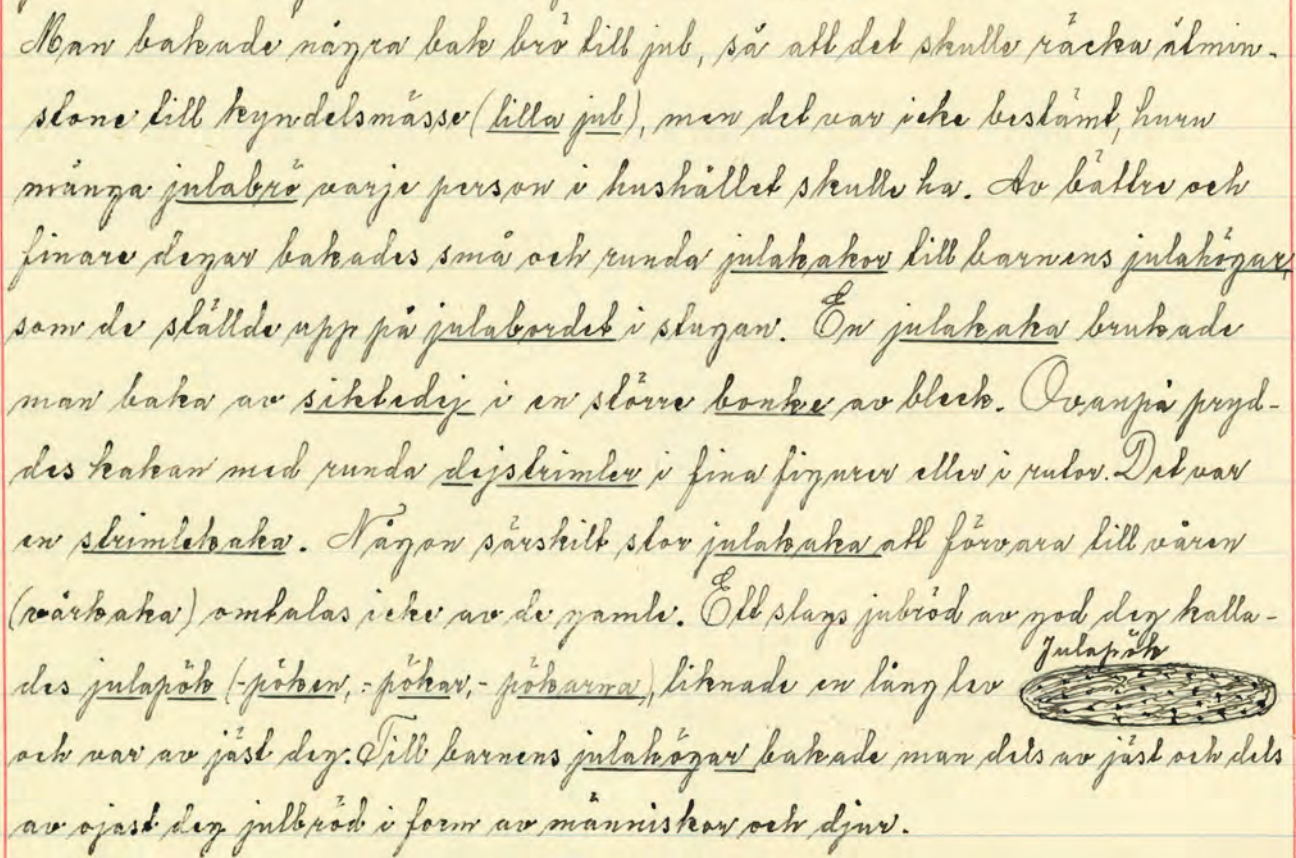 Man bakade några bak brö till jul, så att det skulle räcka åtmin-
stone till kyndelsmässe (lilla jul), men det var icke bestämt, huru
många julabrö varje person i hushållet skulle ha. Av bättre och
finare degar bakades små och runda julakakor till barnens julahögar,
som de ställde upp på julabordet i stugan. En julakaka brukade
man baka av siktedij i en större bonke av bleck. Ovanpå pryd-
des kakan med runda dejstrimler i fina figurer eller i rutor. Det var
en strimlekaka. Någon särskilt stor julakaka att förvara till våren
(vårkaka) omtalas icke av de gamle. Ett slags jubröd av god deg kalla-
des julapök (-pöken, -pökar, -pökarna), liknade en lång lev
Julapök
och var av jäst deg. Till barnens julahögar bakade man dels av jäst och dels
av ojäst deg julbröd i form av människor och djur.